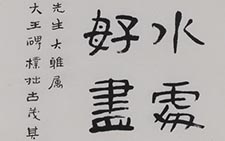 水處
好盡
先生大雅屬
大王碑樸拙古茂其